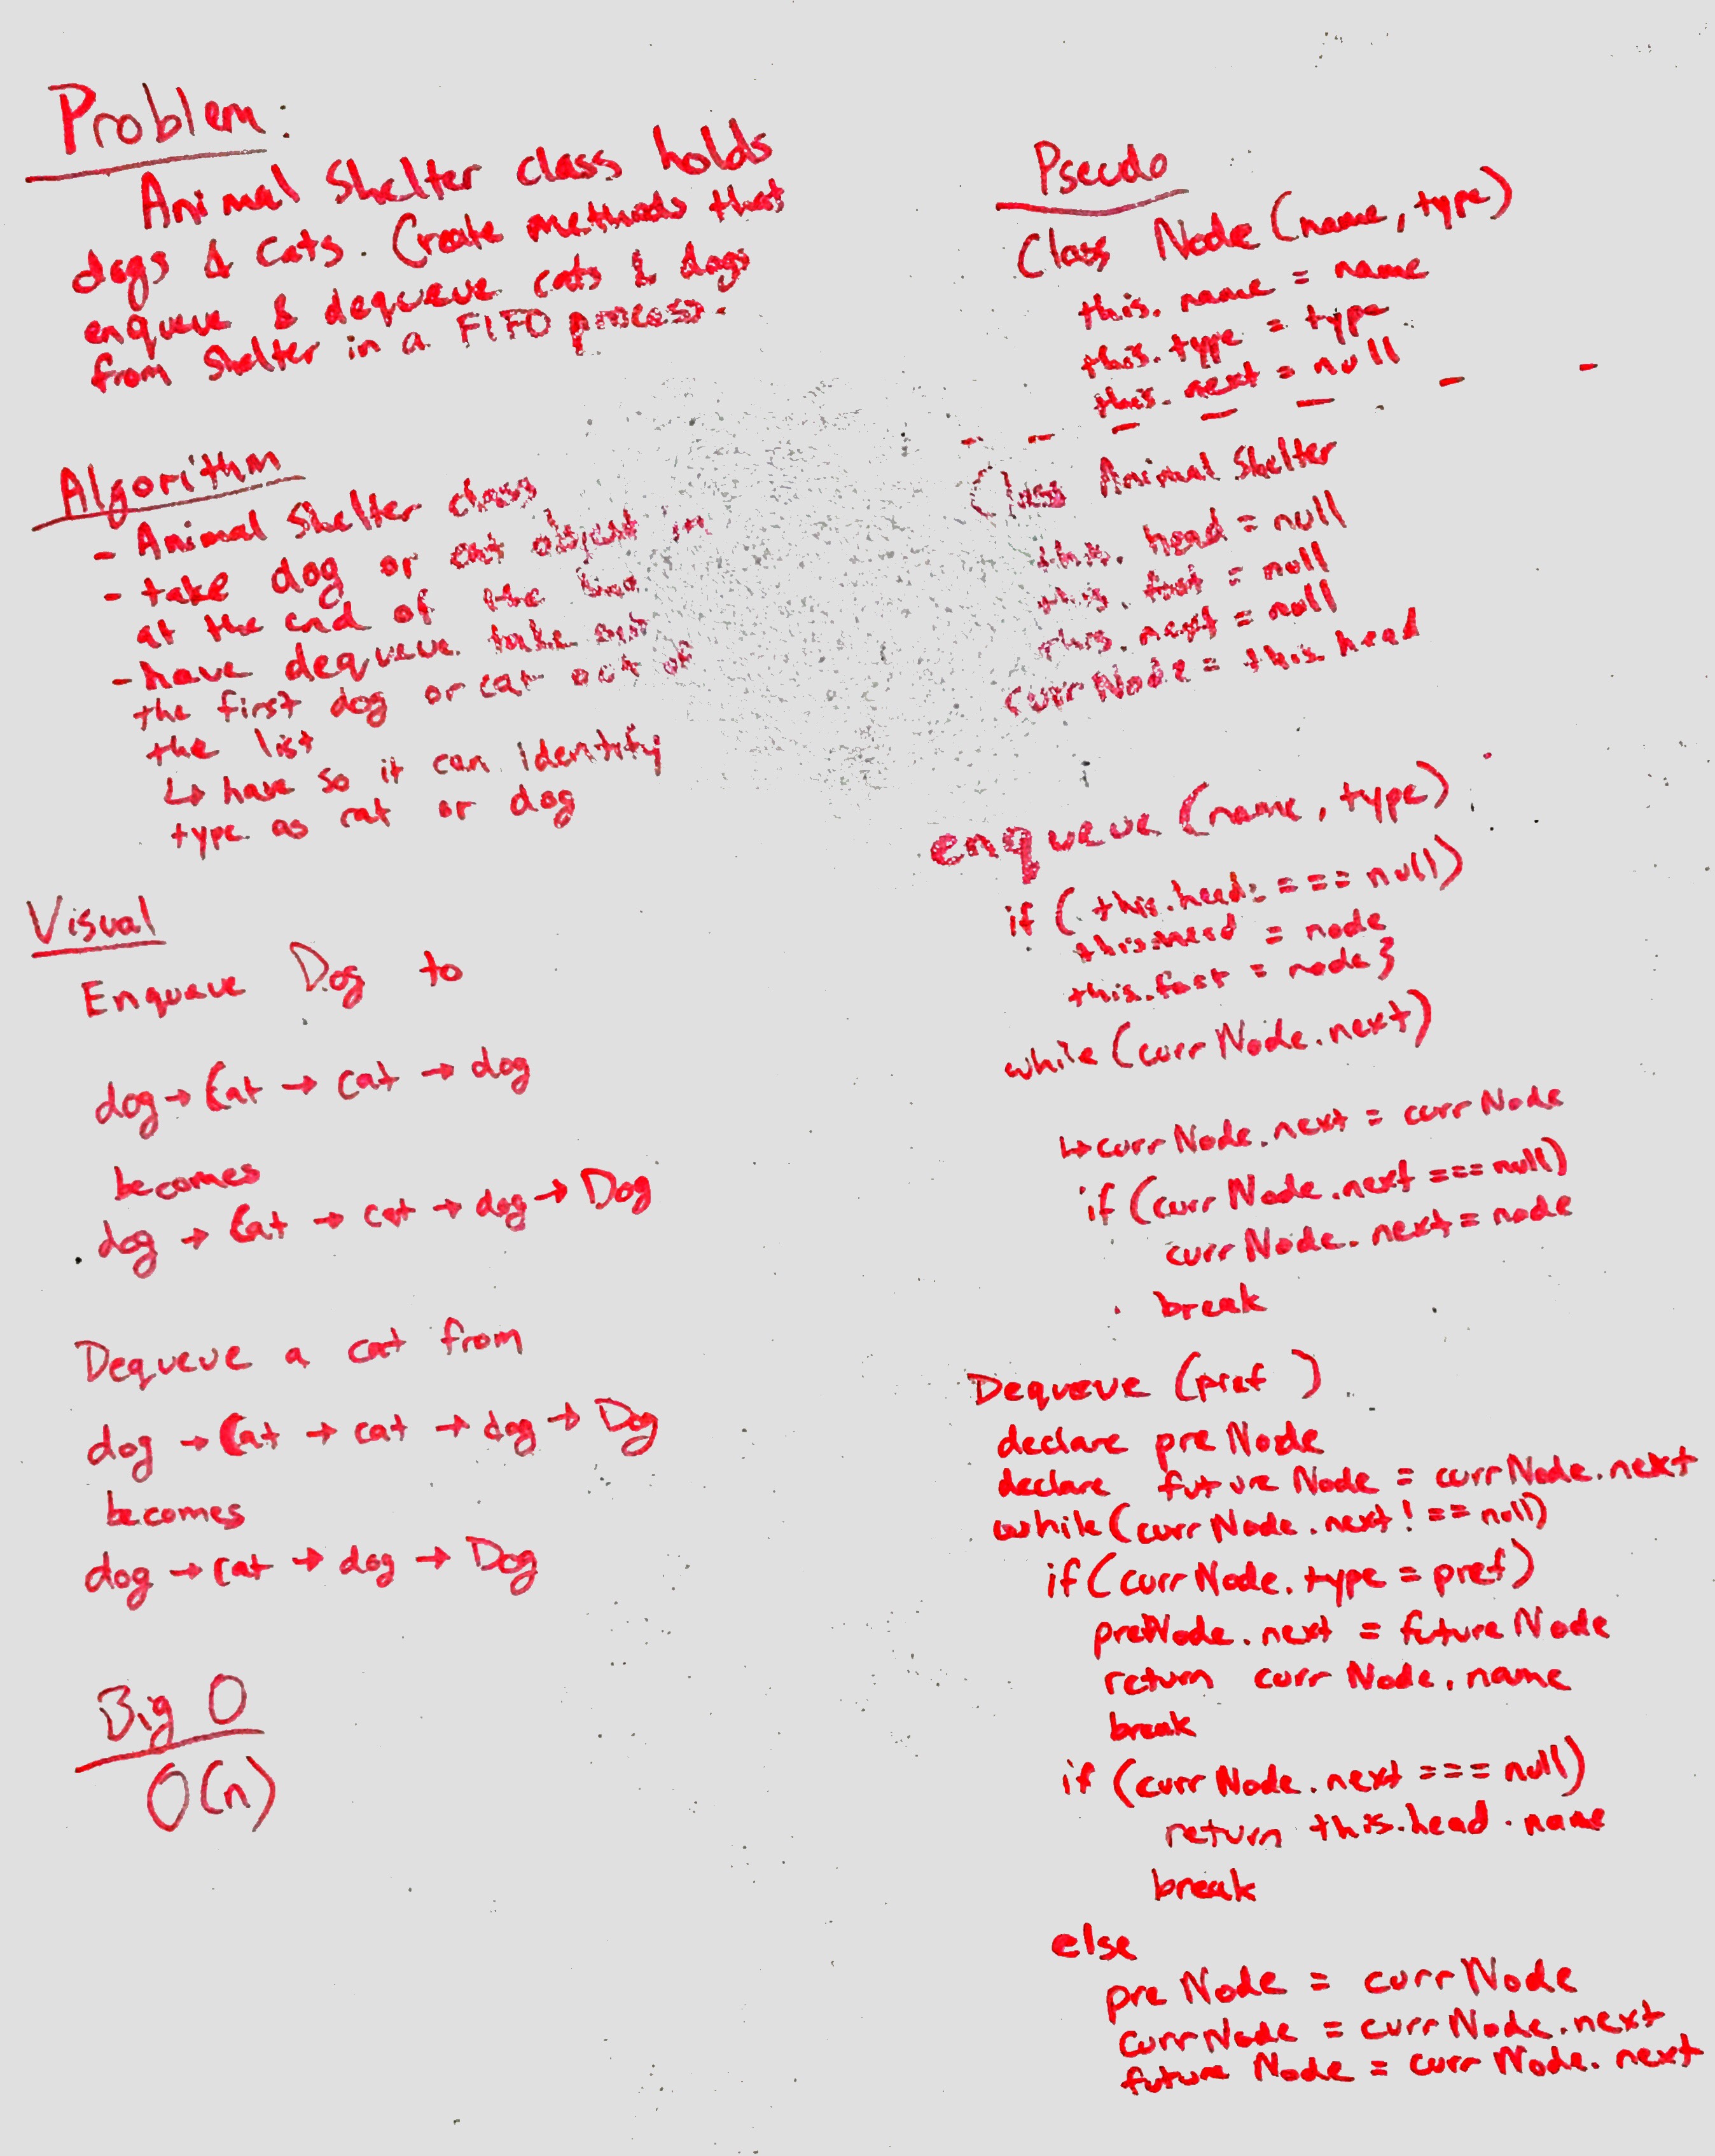 Problem:
Animal Shelter class holds
dogs & cats. Create methods that
enqueue & dequeue cats & dogs
from shelter in a FIFO process.
Algorithm
- Animal Shelter class
- take dog or cat object in
at the end of the
- have dequeue take out
the first dog or cat out of
the list
↳ have so it can identify
type as cat or dog
Visual
Enqueue Dog to
dog → Cat → cat → dog
becomes
dog → Cat → cat → dog → Dog
Dequeue a cat from
dog → Cat → cat → dog → Dog
becomes
dog → cat → dog → Dog
Big O
O(n)
Pseudo
Class Node (name, type)
this.name = name
this.type = type
this.next = null
- - - - - - -
Class Animal Shelter
this.head = null
this. = null
this.next = null
currNode = this.head
enqueue (name, type)
if (this.head === null)
this.head = node
this. = node}
while (currNode.next)
↳ currNode.next = currNode
if (currNode.next === null)
currNode.next = node
break
Dequeue (pref )
declare preNode
declare futureNode = currNode.next
while (currNode.next !== null)
if (currNode.type = pref)
preNode.next = futureNode
return currNode.name
break
if (currNode.next === null)
return this.head.name
break
else
preNode = currNode
currNode = currNode.next
futureNode = currNode.next